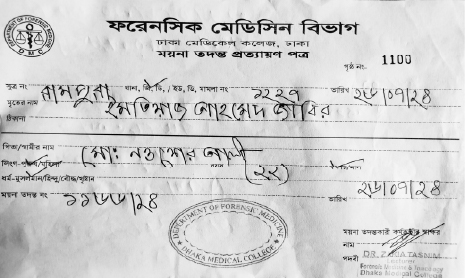 ফরেনসিক মেডিসিন বিভাগ
ঢাকা মেডিকেল কলেজ, ঢাকা
ময়না তদন্ত প্রত্যায়ণ পত্র
পৃষ্ঠ নং- 1100
সূত্র নং রামপুরা থানা, জি, ডি, / ইউ, ডি, মামলা নং ১২২৭ তারিখ ২৬/০৭/২৪
মৃতের নাম ইমতিয়াজ আহমেদ জাবির
ঠিকানা
পিতা/স্বামীর নাম মোঃ নওশের আলী
লিঙ্গ-পুরুষ/মহিলা (২২)
ধর্ম-মুসলমান/হিন্দু/বৌদ্ধ/খৃষ্টান
ময়না তদন্ত নং ১১৬৬/২৪ তারিখ ২৬/০৭/২৪
DEPARTMENT OF FORENSIC MEDICINE
DHAKA MEDICAL COLLEGE
ময়না তদন্তকারী কর্মকর্তার স্বাক্ষর
নাম
পদবী
Lecturer
Forensic Medicine & Toxicology
Dhaka Medical College